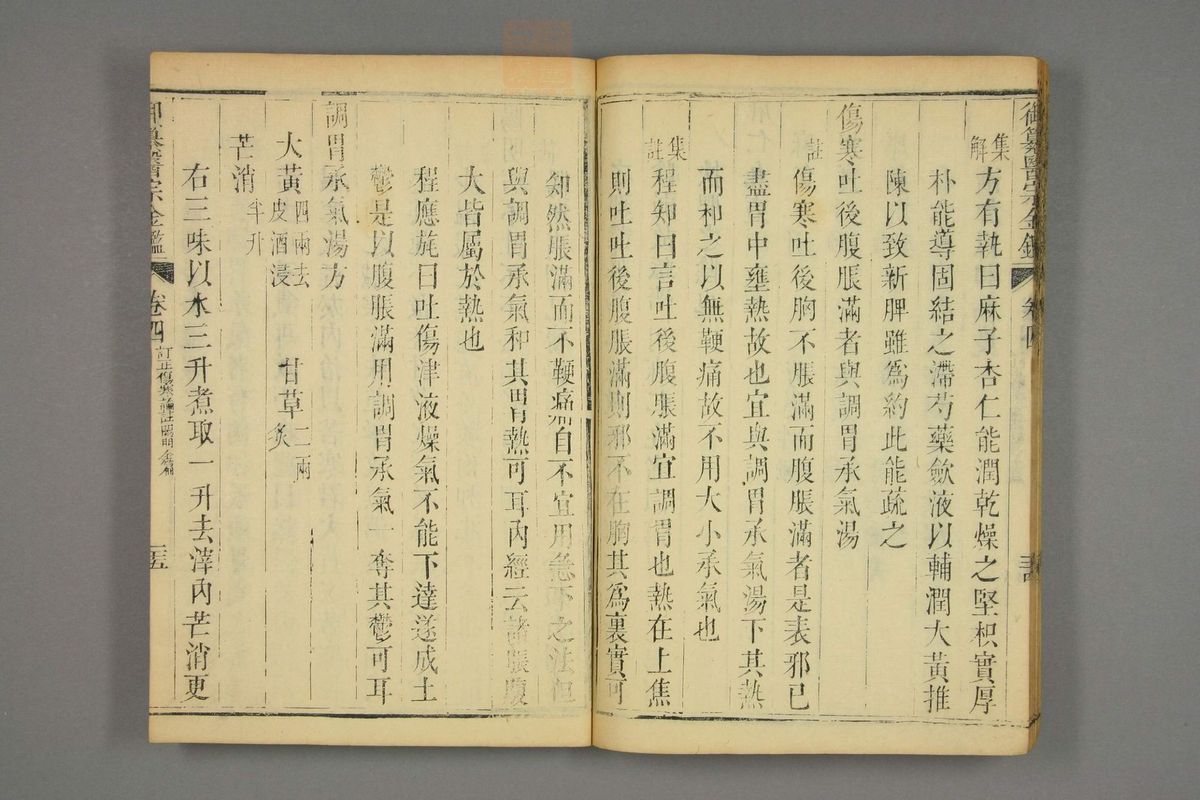 御纂醫宗金鑑 卷四
集解 方有執曰麻子杏仁能潤乾燥之堅枳實厚
朴能導固結之滯芍藥斂液以輔潤大黃推
陳以致新脾雖爲約此能疏之
傷寒吐後腹脹滿者與調胃承氣湯
註 傷寒吐後胸不脹滿而腹脹滿者是表邪已
盡胃中壅熱故也宜與調胃承氣湯下其熱
而和之以無鞕痛故不用大小承氣也
集註 程知曰言吐後腹脹滿宜調胃也熱在上焦
則吐吐後腹脹滿則邪不在胸其爲裏實可
知然脹滿而不鞕痛自不宜用急下之法但
與調胃承氣和其胃熱可耳內經云諸脹腹
大皆屬於熱也
程應旄曰吐傷津液燥氣不能下達遂成土
鬱是以腹脹滿用調胃承氣一奪其鬱可耳
調胃承氣湯方
大黃 四兩去皮酒浸 甘草 二兩炙
芒消 半升
右三味以水三升煮取一升去滓內芒消更
御纂醫宗金鑑 卷四 訂正傷寒論註陽明全篇 三五